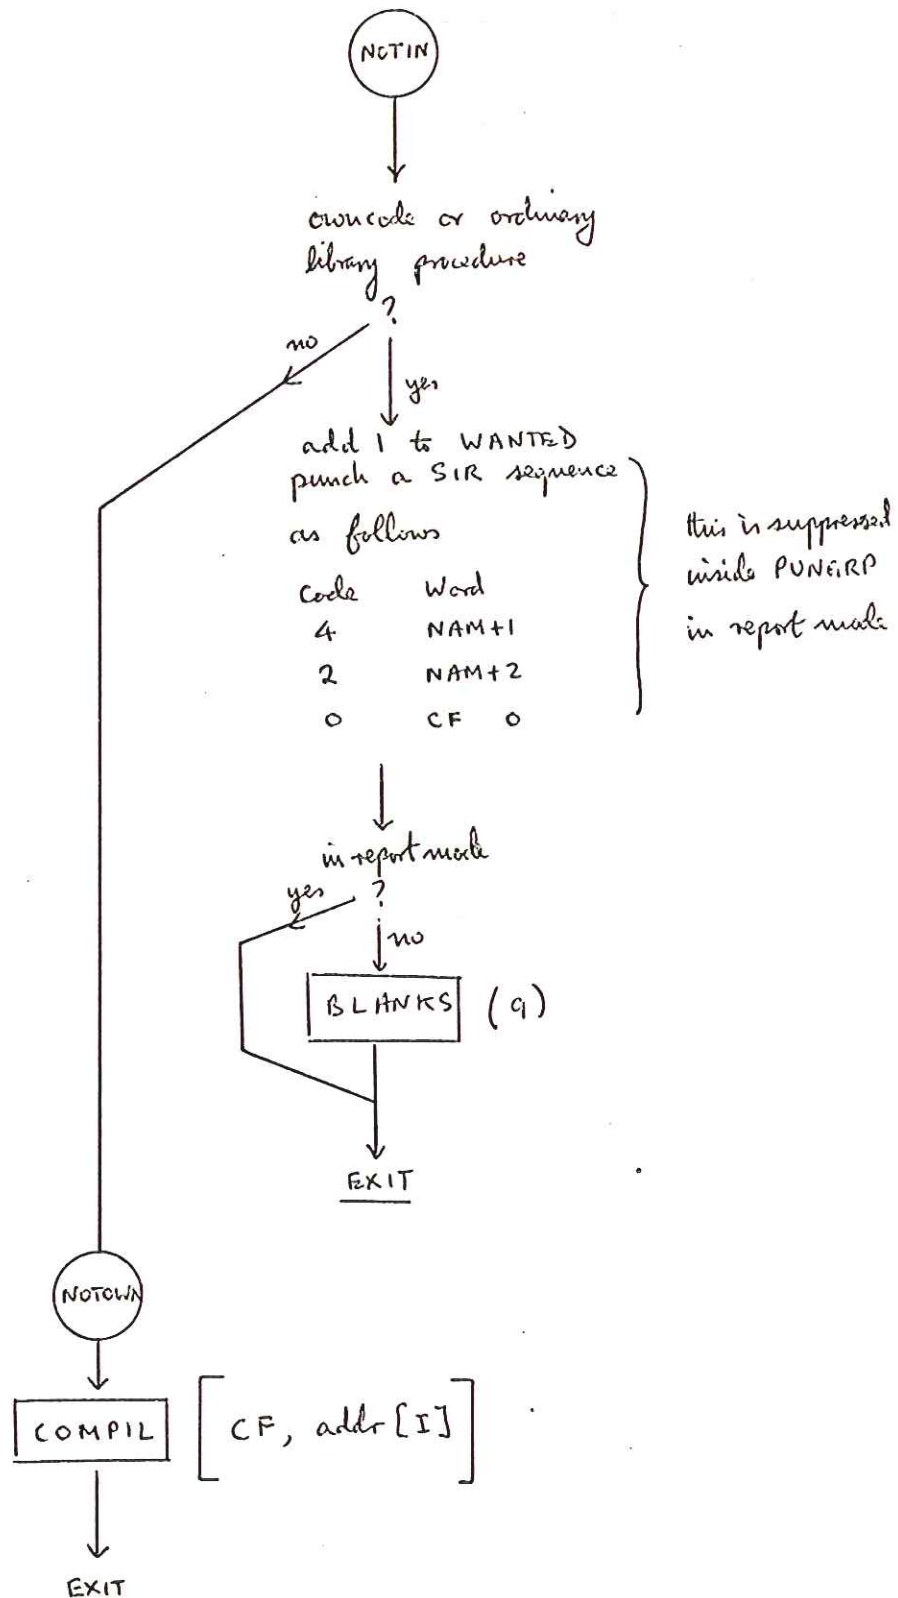 NOTIN
owncode or ordinary
library procedure
?
no
yes
add 1 to WANTED
punch a SIR sequence
as follows
Code Word
4 NAM+1
2 NAM+2
0 CF 0
this is suppressed
inside PUNGRP
in report mode
in report mode
?
yes
no
BLANKS (9)
EXIT
NOTOWN
COMPIL [CF, addr [I]]
EXIT